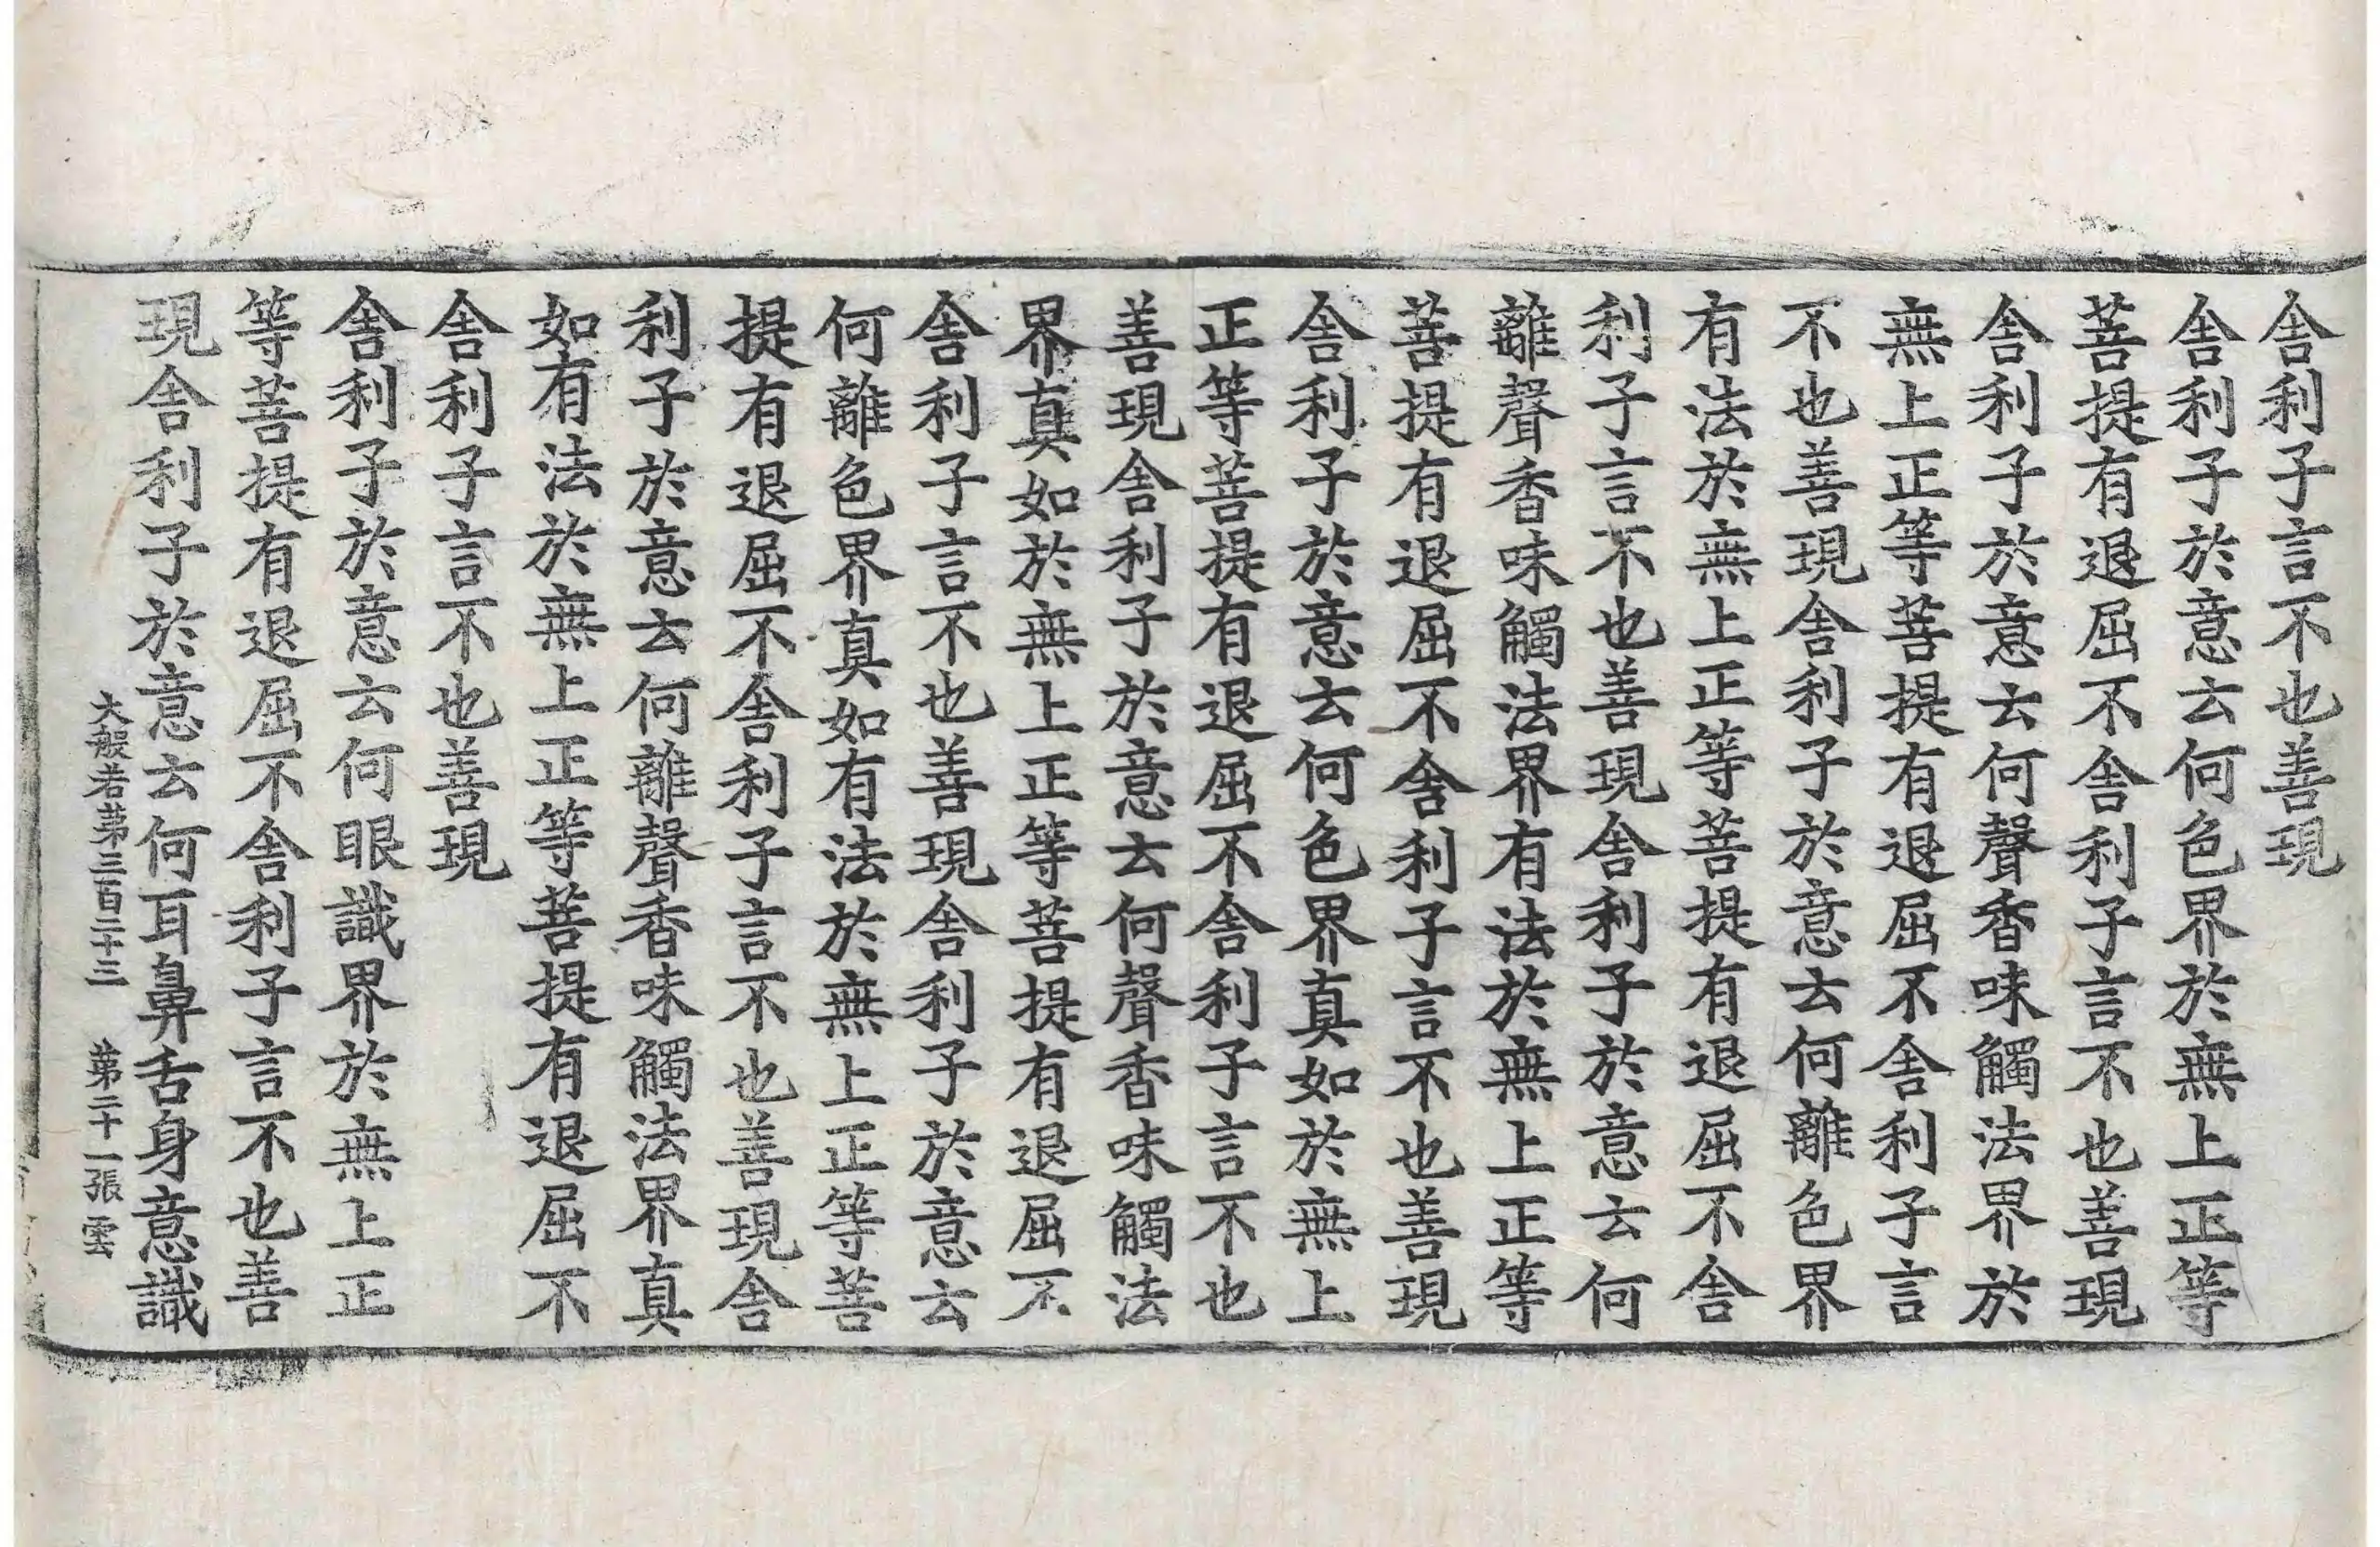 舎利子言不也善現
舎利子於意云何色界於無上正等
菩提有退屈不舎利子言不也善現
舎利子於意云何聲香味觸法界於
無上正等菩提有退屈不舎利子言
不也善現舎利子於意云何離色界
有法於無上正等菩提有退屈不舎
利子言不也善現舎利子於意云何
離聲香味觸法界有法於無上正等
菩提有退屈不舎利子言不也善現
舎利子於意云何色界真如於無上
正等菩提有退屈不舎利子言不也
善現舎利子於意云何聲香味觸法
界真如於無上正等菩提有退屈不
舎利子言不也善現舎利子於意云
何離色界真如有法於無上正等菩
提有退屈不舎利子言不也善現舎
利子於意云何離聲香味觸法界真
如有法於無上正等菩提有退屈不
舎利子言不也善現
舎利子於意云何眼識界於無上正
等菩提有退屈不舎利子言不也善
現舎利子於意云何耳鼻舌身意識
大般若第三百二十三 第二十一張 雲